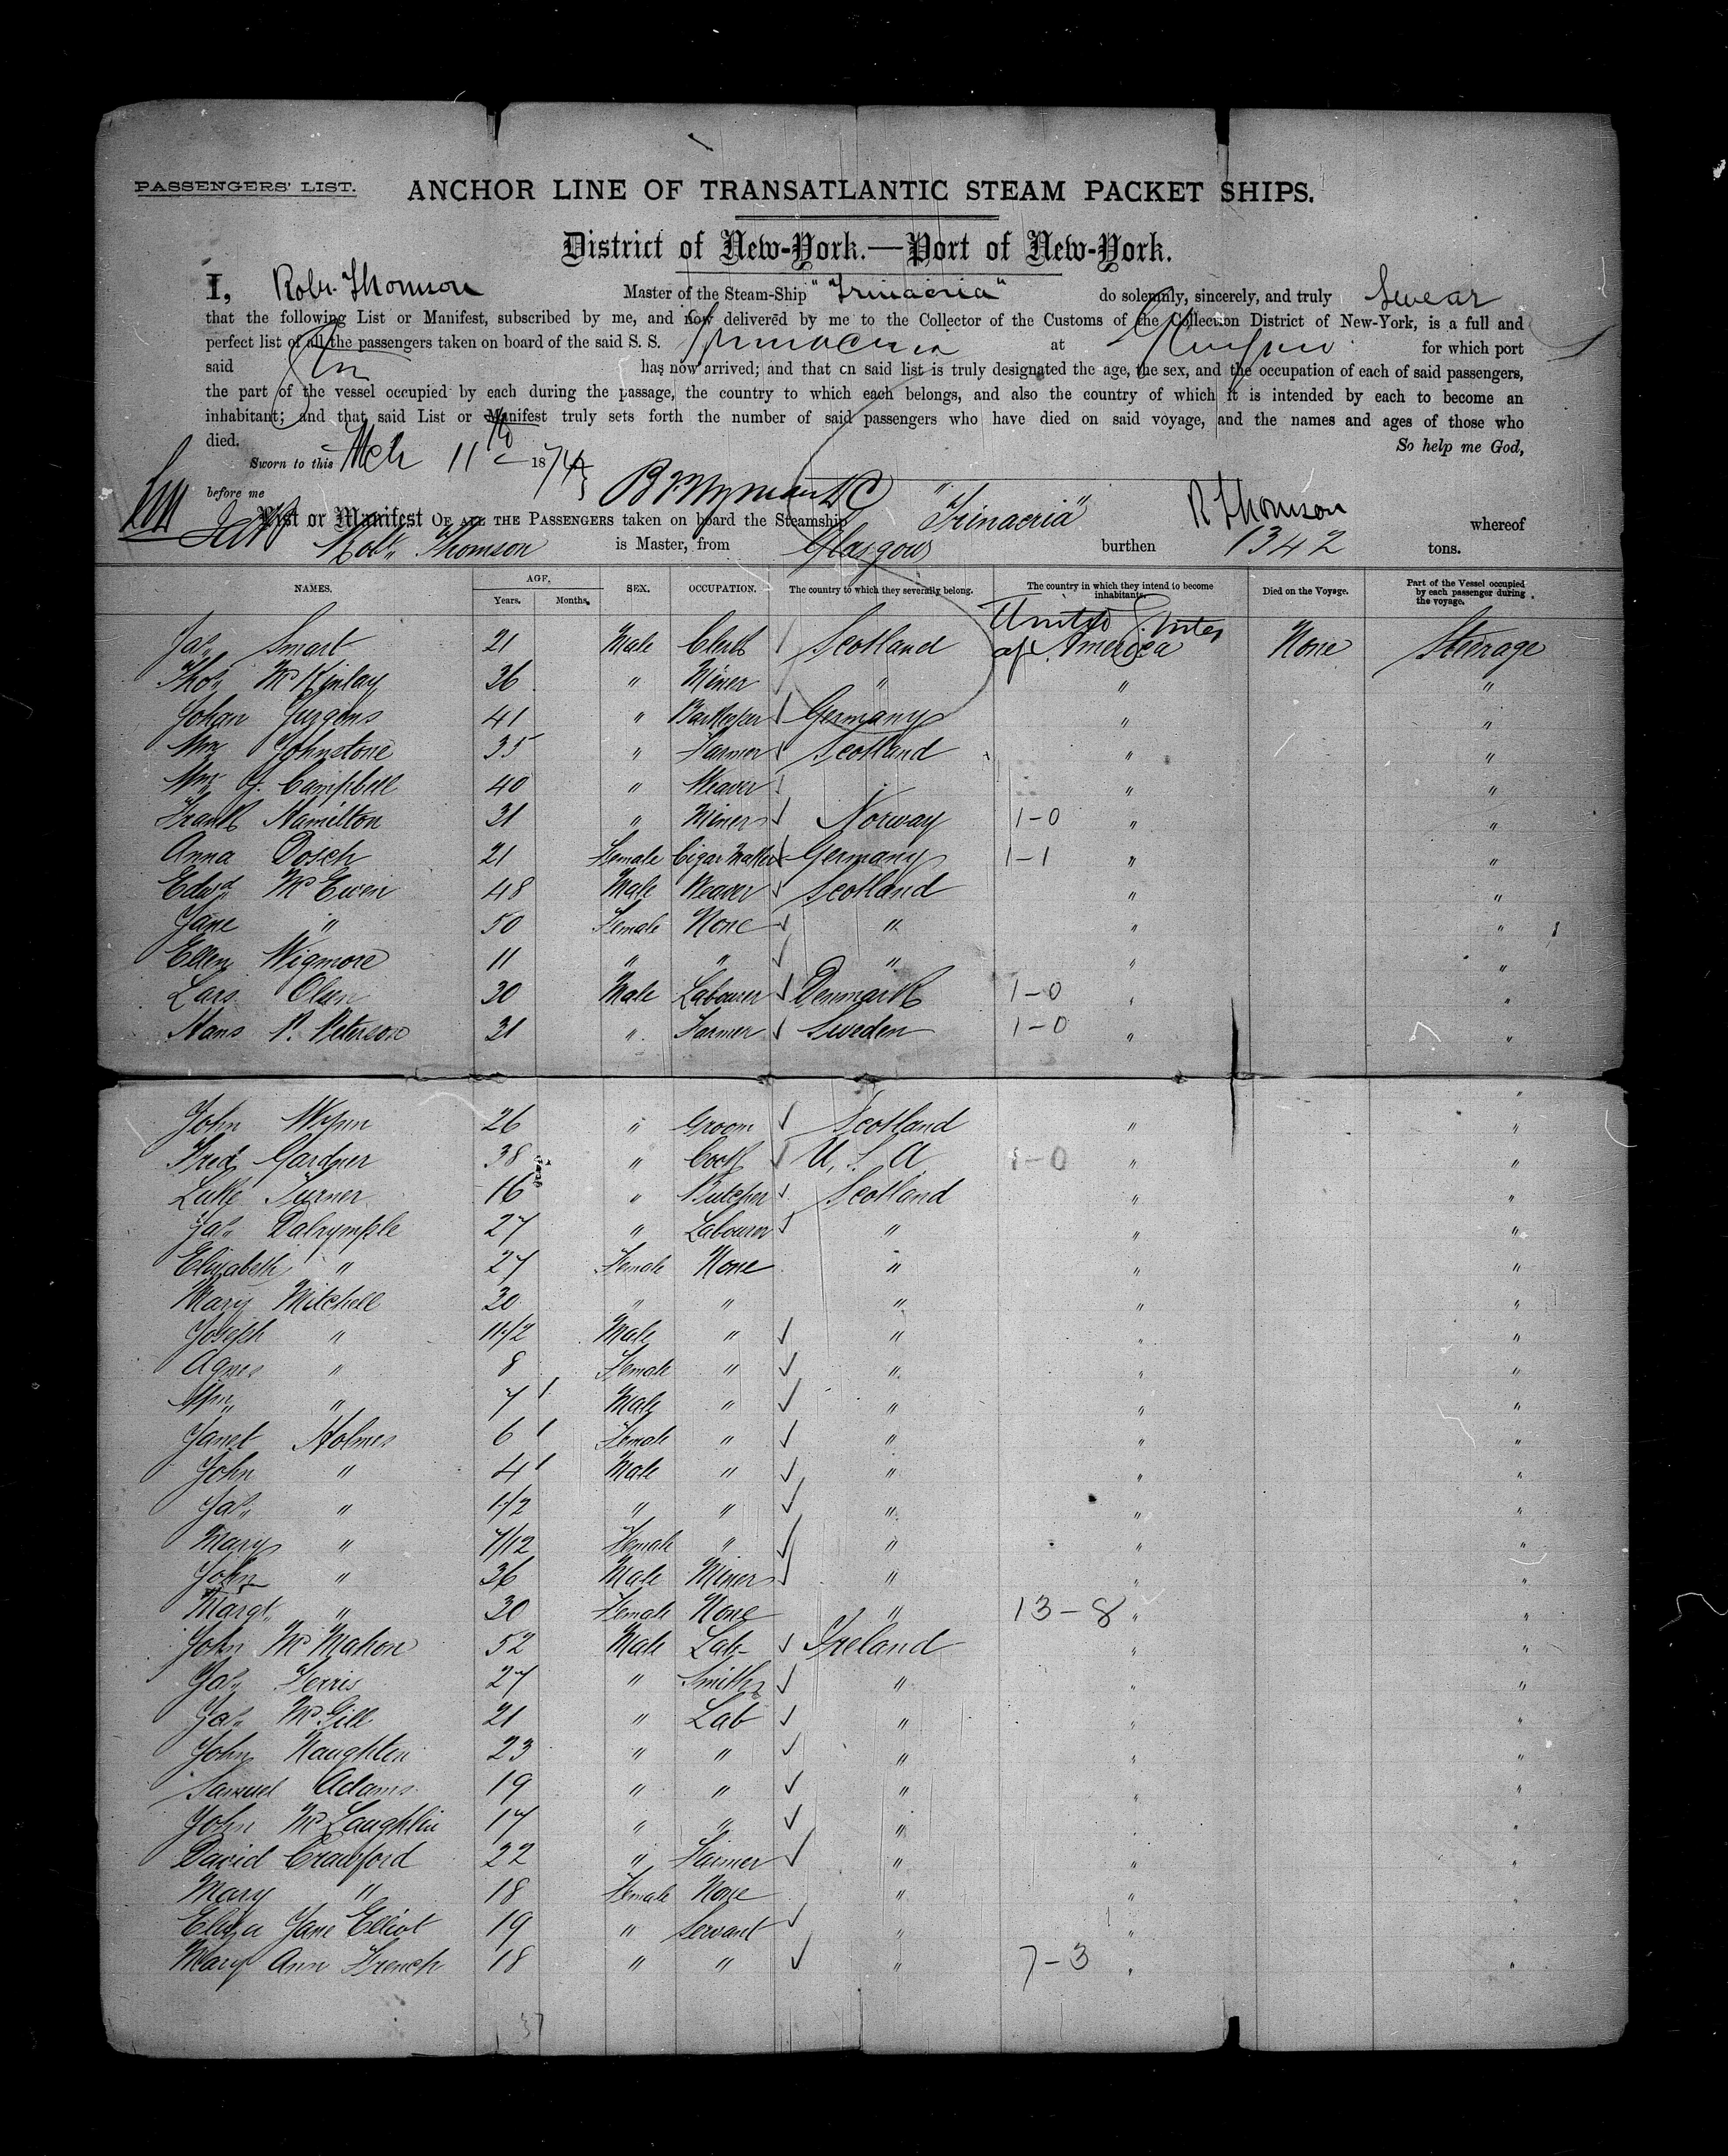 PASSENGERS' LIST.
ANCHOR LINE OF TRANSATLANTIC STEAM PACKET SHIPS.
District of New-York.—Port of New-York.
I, Robt. Thomson Master of the Steam-Ship "Trinacria" do solemnly, sincerely, and truly Swear
that the following List or Manifest, subscribed by me, and now delivered by me to the Collector of the Customs of the Collection District of New-York, is a full and
perfect list of all the passengers taken on board of the said S. S. Trinacria at Glasgow for which port
said has now arrived; and that on said list is truly designated the age, the sex, and the occupation of each of said passengers,
the part of the vessel occupied by each during the passage, the country to which each belongs, and also the country of which it is intended by each to become an
inhabitant; and that said List or Manifest truly sets forth the number of said passengers who have died on said voyage, and the names and ages of those who
died. So help me God,
Sworn to this Mch 11th 1874
before me R Thomson
List or Manifest OF ALL THE PASSENGERS taken on board the Steamship "Trinacria" whereof
Robt. Thomson is Master, from Glasgow burthen 1342 tons.
NAMES. AGE, Years. Months. SEX. OCCUPATION. The country to which they severally belong. The country in which they intend to become inhabitants. Died on the Voyage. Part of the Vessel occupied by each passenger during the voyage.
Jas. Smart 21 Male Clerk Scotland United States of America None Steerage
Thos. McKinlay 26 " Miner " " "
Johan Jurgens 41 " Barkeeper Germany " "
Wm Johnstone 35 " Farmer Scotland " "
Wm J. Campbell 40 " Weaver " "
Frank Hamilton 31 " Miner Norway 1-0 " "
Anna Dosch 21 Female Cigar Maker Germany 1-1 " "
Edwd McEwen 48 Male Weaver Scotland " "
Jane " 50 Female None " " "
Ellen Wigmore 11 " " " " "
Lars Olsen 30 Male Labourer Denmark 1-0 " "
Hans P. Peterson 31 " Farmer Sweden 1-0 " "
John Wynn 26 " Groom Scotland " "
Fred Gardner 38 " Cook U.S.A. 1-0 " "
Luke Turner 16 " Butcher Scotland " "
Jas. Dalrymple 27 " Labourer " " "
Elizabeth " 27 Female None " " "
Mary Mitchell 30 " " " " "
Joseph " 11 1/2 Male " " " "
Agnes " 8 Female " " " "
Wm " 7 Male " " " "
Janet Holmes 6 Female " " " "
John " 4 Male " " " "
Jas. " 1 1/2 " " " " "
Mary " 7/12 Female " " " "
John " 36 Male Miner " " "
Margt. " 30 Female None " 13-8 " "
John McMahon 52 Male Lab Ireland " "
Jas. Ferris 27 " Smith " " "
Jas. McGill 21 " Lab " " "
John Naughten 23 " " " " "
Samuel Adams 19 " " " " "
John McLaughlin 17 " " " "
David Crawford 22 " Farmer " " "
Mary " 18 Female None " "
Eliza Jane Elliot 19 " Servant " "
Mary Ann French 18 " " " 7-3 " "
37